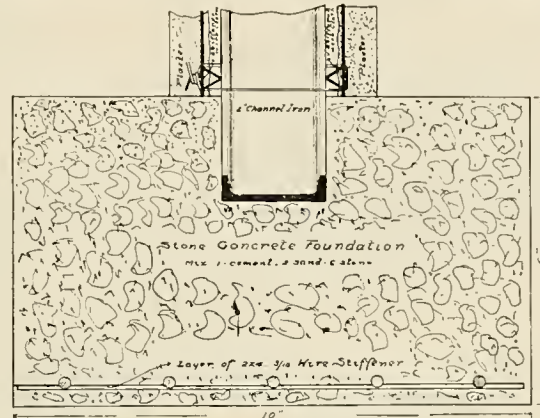 Plaster
Plaster
2" Channel Iron
Stone Concrete Foundation
Mix 1-cement, 2 sand-6 stone
Layer of 2x4 3/10 Wire Stiffener
10"